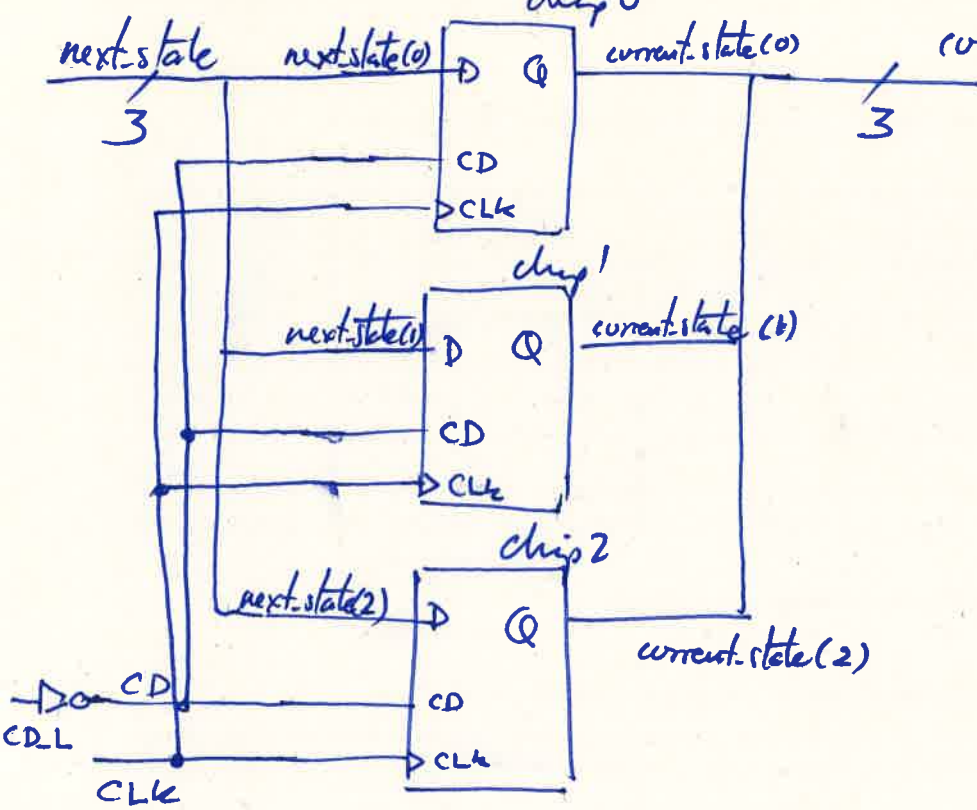 chip 0
next_state next_state(0) D Q current_state(0) cu
3 3
CD
CLK
chip 1
next_state(1) D Q current_state(1)
CD
CLK
chip 2
next_state(2) D Q
current_state(2)
CD CD
CD_L CLK
CLK